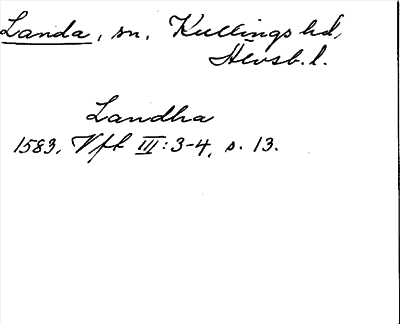 Landa, sn, Kullings hd,
Älvsb. l.
Landha
1583, Vft III: 3-4, s. 13.